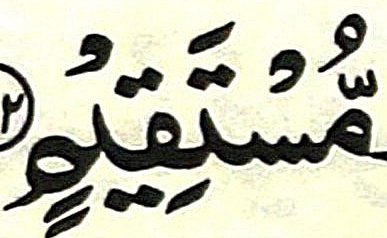 مُّسْتَقِيْمٍ